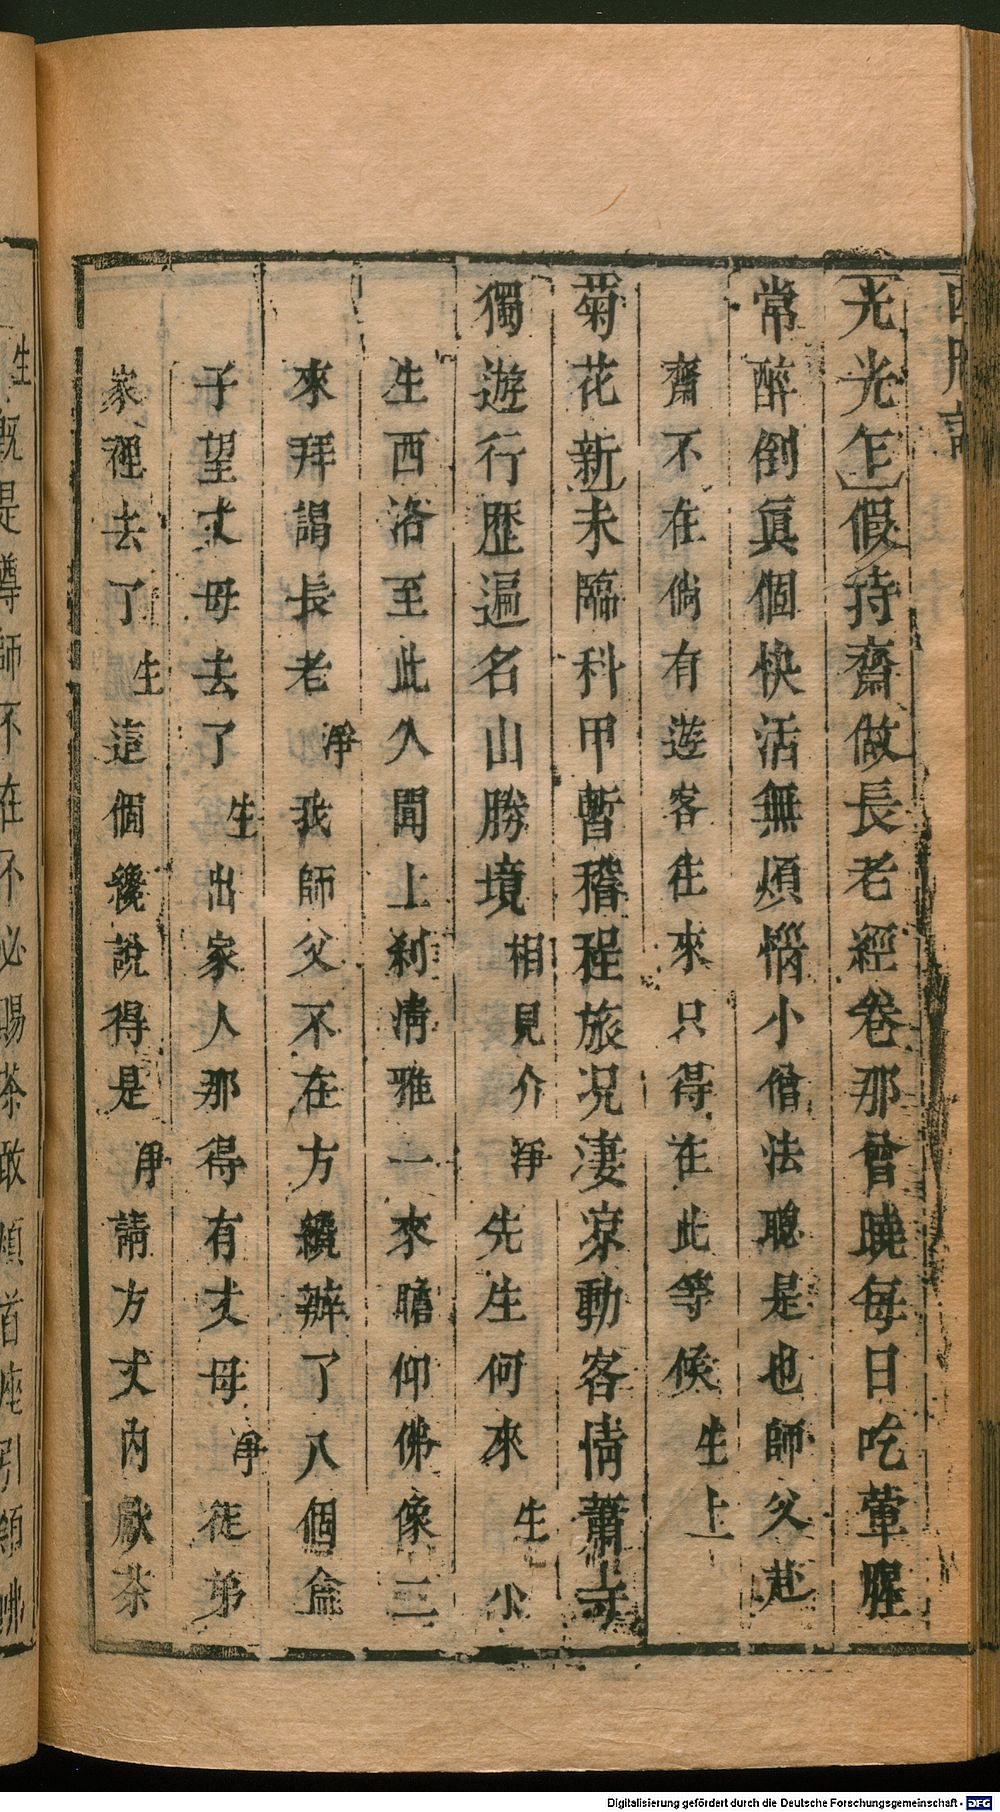 西廂記
光光乍假持齋做長老經卷那曾曉每日吃葷腥
常醉倒眞個快活無煩惱小僧法聰是也師父赴
齋不在倘有遊客往來只得在此等候生上
菊花新未臨科甲暫稽程旅況淒涼動客情蕭寺
獨遊行歷遍名山勝境相見介淨先生何來生小
生西洛至此久聞上刹清雅一來瞻仰佛像二
來拜謁長老淨我師父不在方纔辦了八個盒
子望丈母去了生出家人那得有丈母淨徒弟
家裡去了生這個纔說得是淨請方丈內献茶
生既是尊師不在不必賜茶敢煩首座引領
Digitalisierung gefördert durch die Deutsche Forschungsgemeinschaft - DFG